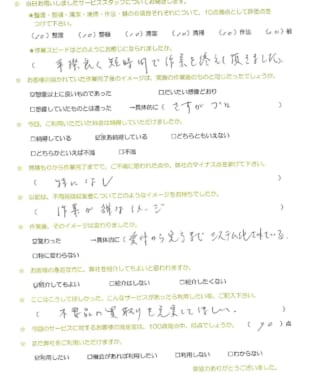 ※ 当日お伺いしましたサービススタッフについてお聞きします。
★整理・整頓・清潔・清掃・作法・躾の6項目それぞれについて、10点満点として評価点をつけて下さい。
(10)整理 (10)整頓 (10)清潔 (10)清掃 (10)作法 (10)躾
★作業スピードはどのようにお感じになられましたか。
( 手際良く短時間で作業を終えて頂きました。 )
※ お客様の描かれていた作業完了後のイメージは、実際の作業後のものと同じだったでしょうか。
☑想像以上に良いものであった □だいたい想像どおり
□想像していたものとは違った →具体的に( さすがプロ )
※ 今回、ご利用いただいた料金は納得していただけましたか。
□納得している ☑まあ納得している □どちらともいえない
□どちらかといえば不満 □不満
※ 見積もりから作業完了までで、ご不満に思われた点や、弊社のマイナス点を挙げて下さい。
( 特になし )
※ 以前は、不用品回収業者についてどのようなイメージをお持ちでしたか。
( 作業が雑なイメージ )
※ 作業後、そのイメージは変わりましたか。
☑変わった →具体的に( 受付から完了までシステム化されている。 )
□特に変わらない
※ お客様の身近な方に、弊社を紹介してもよいと思われますか。
☑紹介してもよい □紹介はしない □紹介したくない
※ ここはこうしてほしかった、こんなサービスがあったら利用したい等、ご記入下さい。
( 不要品の買取りを充実してほしい。 )
※ 今回のサービスに対するお客様の満足度は、100点満点中、何点でしょうか。( 90 )点
※ また弊社をご利用いただけますか。
☑利用したい □機会があれば利用したい □利用しない □わからない
ご協力ありがとうございました。